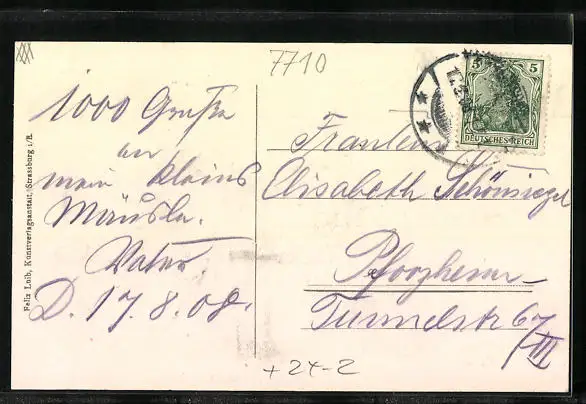 7710
5 5
DEUTSCHES REICH
1000 Grüße
an
mein kleines
Mäusle.
Vater.
D. 17.8.08.
Fräulein
Elisabeth Schönsiegel
Pforzheim
Tunnelstr 67
III
Felix Luib, Kunstverlagsanstalt, Strassburg i/E.
+ 24-2